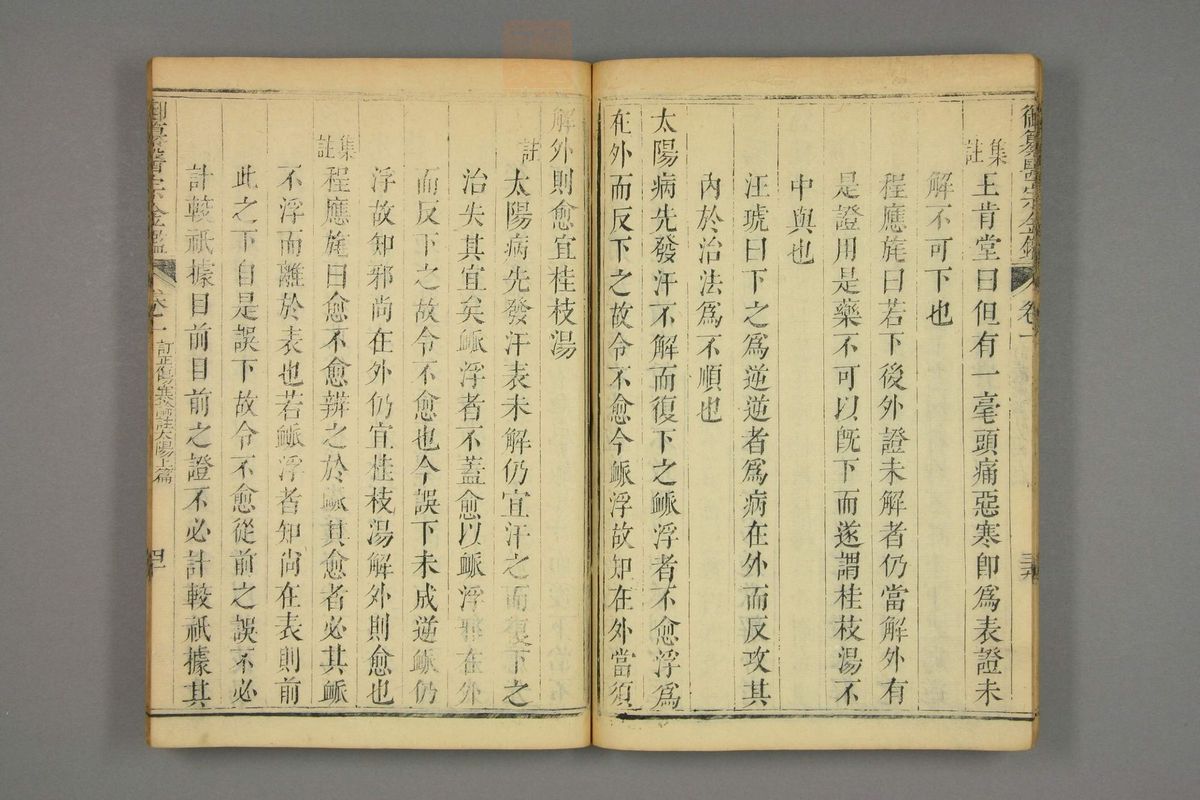 御纂醫宗金鑑 卷一 三十九
集註 王肯堂曰但有一毫頭痛惡寒即爲表證未
解不可下也
程應旄曰若下後外證未解者仍當解外有
是證用是藥不可以旣下而遂謂桂枝湯不
中與也
汪琥曰下之爲逆逆者爲病在外而反攻其
內於治法爲不順也
太陽病先發汗不解而復下之䘑浮者不愈浮爲
在外而反下之故令不愈今䘑浮故知在外當須
解外則愈宜桂枝湯
註 太陽病先發汗表未解仍宜汗之而復下之
治失其宜矣䘑浮者不蓋愈以䘑浮邪在外
而反下之故令不愈也今誤下未成逆䘑仍
浮故知邪尚在外仍宜桂枝湯解外則愈也
集註 程應旄曰愈不愈辨之於䘑其愈者必其䘑
不浮而離於表也若䘑浮者知尚在表則前
此之下自是誤下故令不愈從前之誤不必
計較祇據目前目前之證不必計較祇據其
御纂醫宗金鑑 卷一 訂正傷寒論註太陽上篇 四十